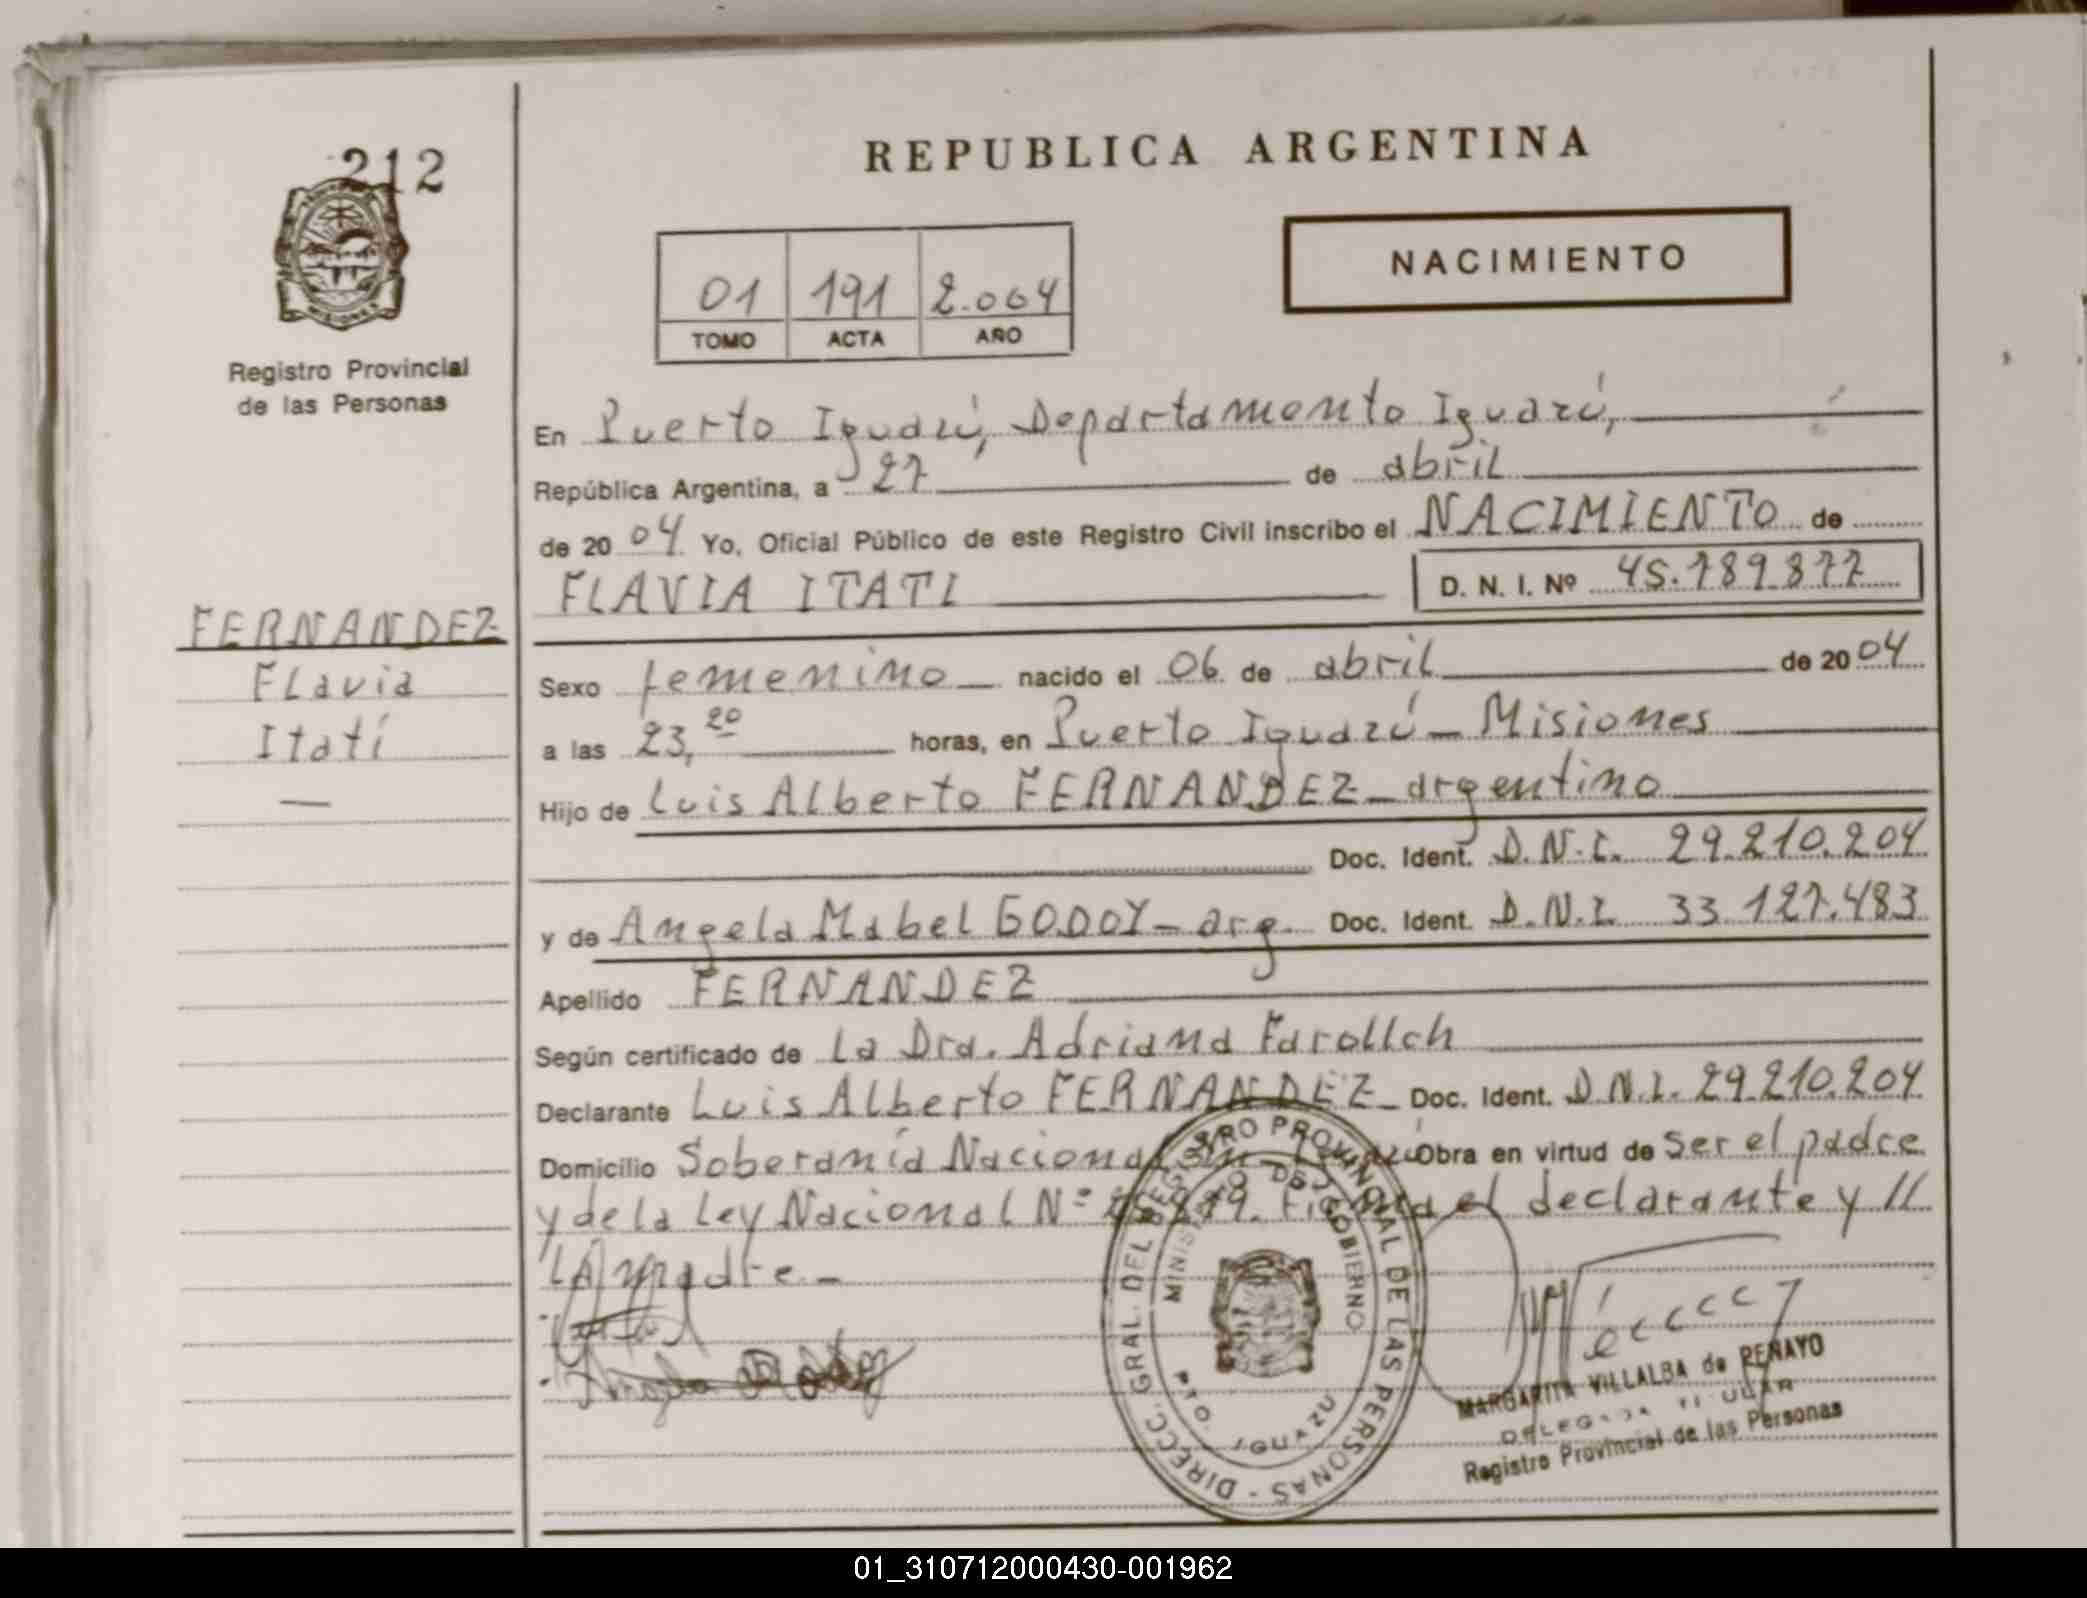 212
REPUBLICA ARGENTINA
NACIMIENTO
01 191 2.004
TOMO ACTA AÑO
Registro Provincial
de las Personas
En Puerto Iguazú, Departamento Iguazú,
República Argentina, a 27 de abril
de 20 04 Yo, Oficial Público de este Registro Civil inscribo el NACIMIENTO de
FLAVIA ITATI D. N. I. Nº 45.789.877
FERNANDEZ
Flavia
Itatí
—
Sexo femenino nacido el 06 de abril de 20 04
a las 23,20 horas, en Puerto Iguazú - Misiones
Hijo de Luis Alberto FERNANDEZ - argentino
Doc. Ident. D.N.I. 29.210.204
y de Angela Mabel GODOY - arg. Doc. Ident. D.N.I. 33.127.483
Apellido FERNANDEZ
Según certificado de La Dra. Adriana Farollch
Declarante Luis Alberto FERNANDEZ - Doc. Ident. D.N.I. 29.210.204
Domicilio Soberanía Nacional Obra en virtud de ser el padre
y de la Ley Nacional Nº el declarante y //
LA madre. -
DIRECC. GRAL. DEL REGISTRO PROVINCIAL DE LAS PERSONAS -
MINISTERIO DE GOBIERNO
PTO. IGUAZU
MARGARITA VILLALBA de PENAYO
DELEGADA TITULAR
Registro Provincial de las Personas
01_310712000430-001962